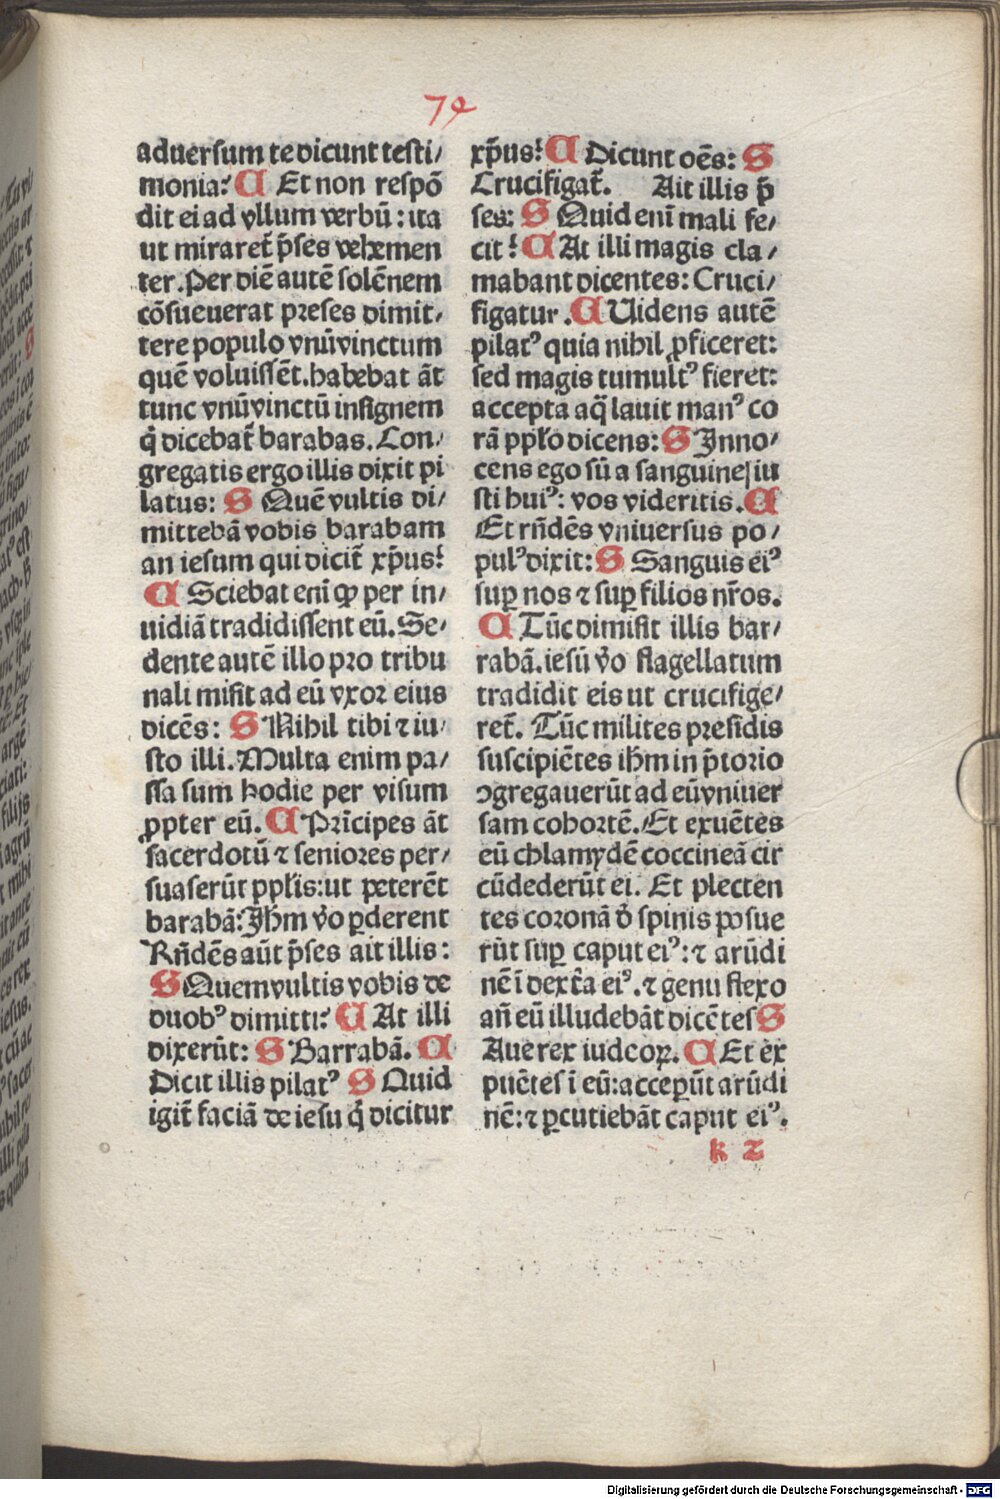 74
aduersum te dicunt testi/
monia? C Et non respõ
dit ei ad vllum verbũ: ita
ut miraret̃ p̃ses vehemen
ter. Per diẽ autẽ solẽnem
cõsueuerat preses dimit/
tere populo vnũ vinctum
quẽ voluissẽt. habebat ãt
tunc vnũ vinctũ insignem
q̃ dicebat̃ barabas. Con/
gregatis ergo illis dixit pi
latus: S Quẽ vultis di/
mittebã vobis barabam
an iesum qui dicit̃ xp̃us?
C Sciebat eni ꝙ per in/
uidiã tradidissent eũ. Se/
dente autẽ illo pro tribu
nali misit ad eũ vxor eius
dicẽs: S Nihil tibi ⁊ iu/
sto illi. Multa enim pa/
ssa sum hodie per visum
ꝓpter eũ. C Prĩcipes ãt
sacerdotũ ⁊ seniores per/
suaserũt ppl̃is: ut peterẽt
barabã: Jhm̃ ṽo ꝑderent
Rñdẽs aũt p̃ses ait illis:
S Quem vultis vobis de
duobꝰ dimitti? C At illi
dixerũt: S Barrabã. C
Dicit illis pilatꝰ S Quid
igit̃ faciã de iesu q̃ dicitur
xp̃us? C Dicunt oẽs: S
Crucifigat̃. Ait illis p̃
ses: S Quid enĩ mali fe/
cit? C At illi magis cla/
mabant dicentes: Cruci/
figatur. C Uidens autẽ
pilatꝰ quia nihil ꝓficeret:
sed magis tumultꝰ fieret:
accepta aq̃ lauit manꝰ co
rã ppl̃o dicens: S Inno/
cens ego sũ a sanguine iu
sti huiꝰ: vos videritis. C
Et rñdẽs vniuersus po/
pulꝰ dixit: S Sanguis eiꝰ
suꝑ nos ⁊ suꝑ filios nr̃os.
C Tũc dimisit illis bar/
rabã. iesũ ṽo flagellatum
tradidit eis ut crucifige/
ret̃. Tũc milites presidis
suscipiẽtes ihm̃ in p̃torio
ꝯgregauerũt ad eũ vniuer
sam cohortẽ. Et exuẽtes
eũ chlamydẽ coccineã cir
cũdederũt ei. Et plecten
tes coronã d̃ spinis posue
rũt suꝑ caput eiꝰ: ⁊ arũdi
nẽ ĩ dext̃a eiꝰ. ⁊ genu flexo
añ eũ illudebãt dicẽtes S
Aue rex iudeoꝝ. C Et ex
puẽtes ĩ eũ: acceperũt arũdi
nẽ: ⁊ ꝑcutiebãt caput eiꝰ.
k 2
Digitalisierung gefördert durch die Deutsche Forschungsgemeinschaft - DFG